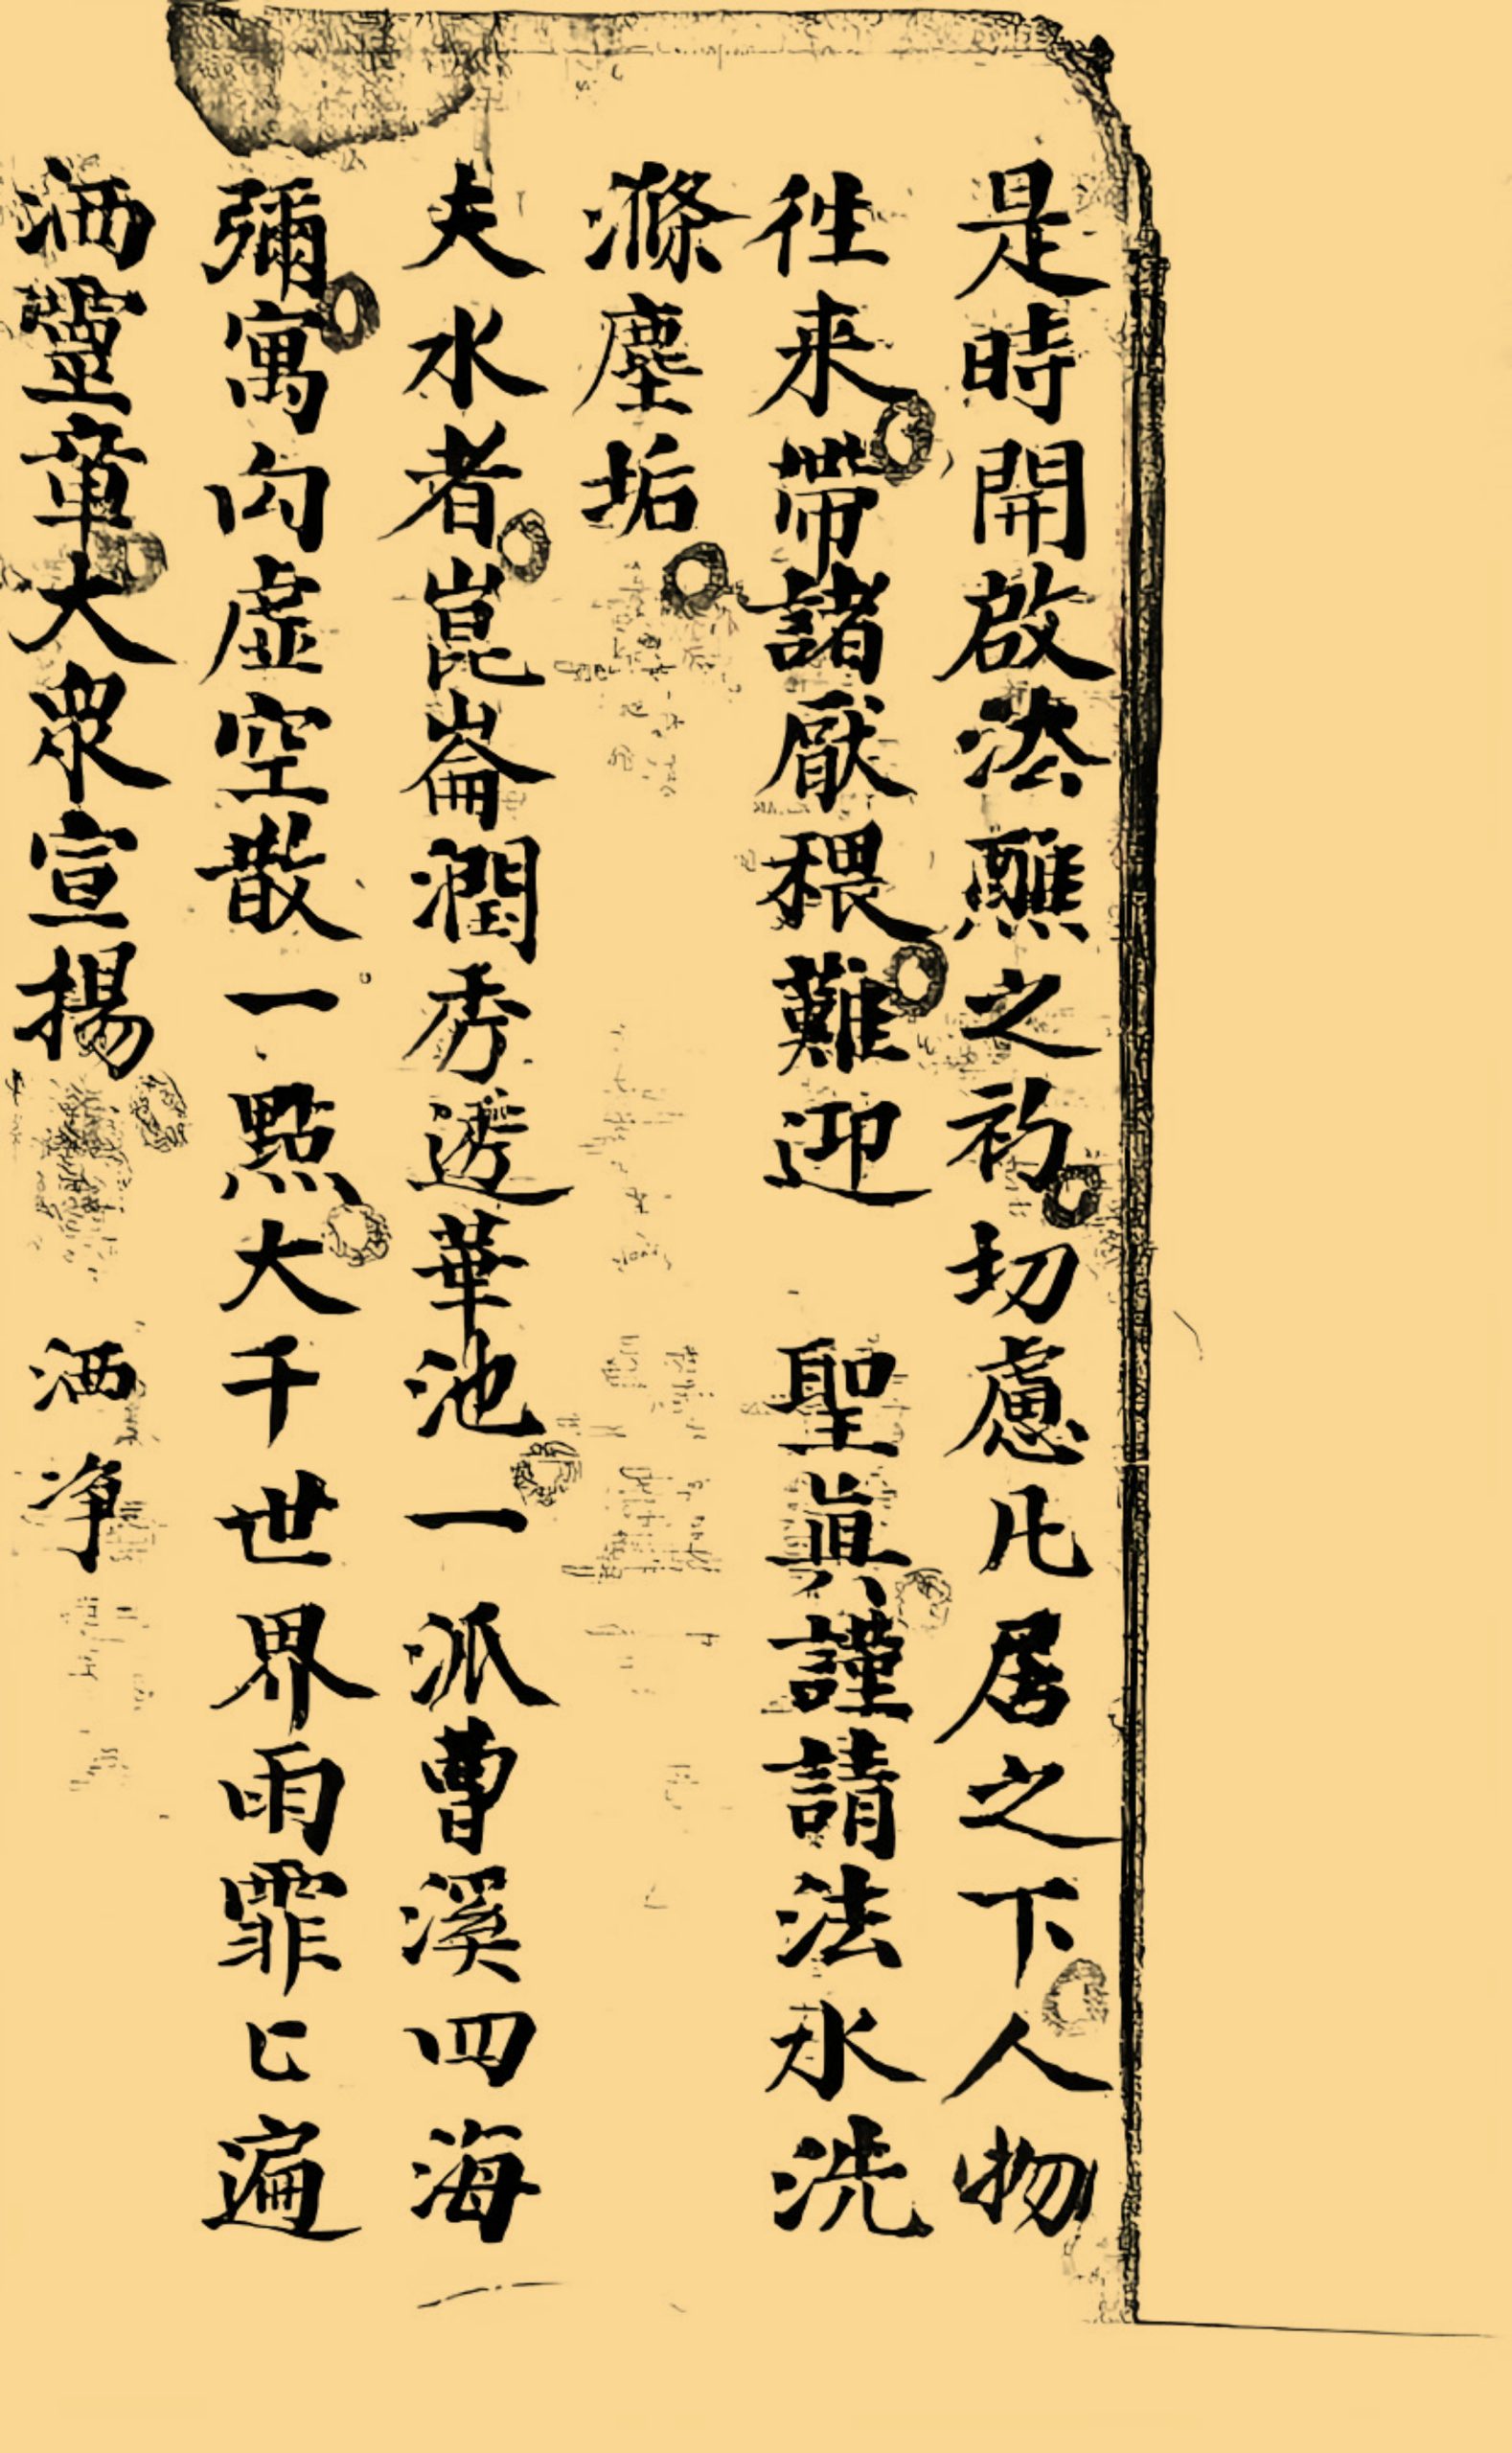 是時開啟法醮之礿切慮凡居之下人物
徃来帶諸厭猥難迎　聖真謹請法水洗
滌塵垢
夫水者崑崙潤秀透華池一派曹溪四海
彌寓內虛空散一點大千世界雨霏已遍
洒靈章大眾宣揚　洒净